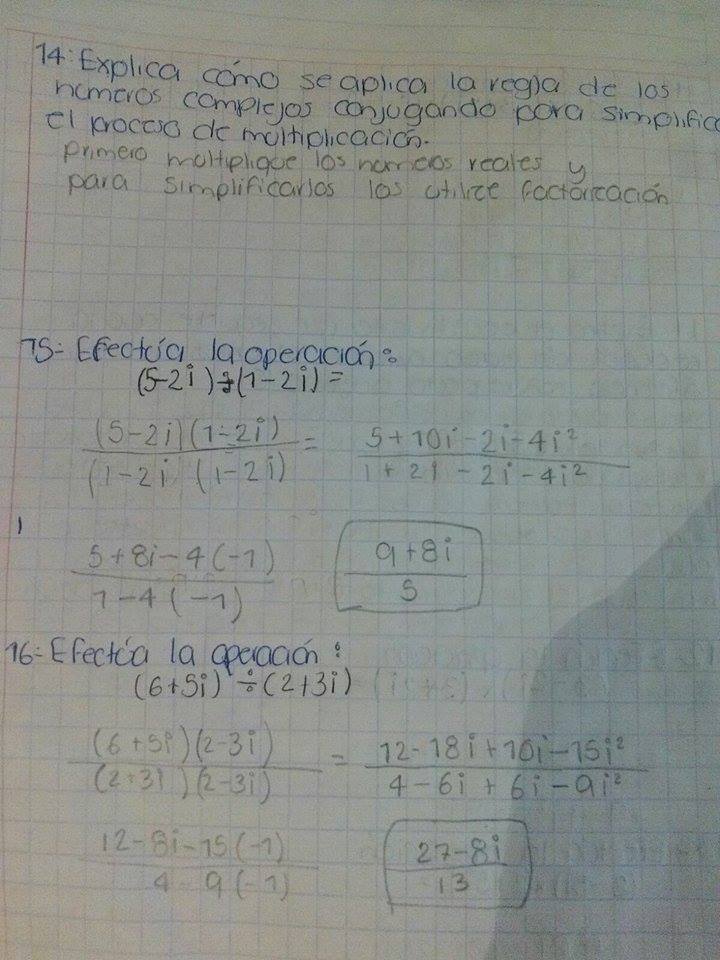 14: Explica cómo se aplica la regla de los
números complejos conjugando para simplifica
el proceso de multiplicación.
primero multiplique los numeros reales y
para simplificarlos los utilize factorización
15= Efectúa la operación:
(5-2i)÷(1-2i)=
(5-2i)(1-2i) / (1-2i (1-2i) = 5+10i-2i-4i² / 1+2i-2i-4i²
5+8i-4(-1) / 1-4(-1) 9+8i / 5
16= Efectúa la operación:
(6+5i)÷(2+3i)
(6+5i)(2-3i) / (2+3i)(2-3i) = 12-18i+10i-15i² / 4-6i+6i-9i²
12-8i-15(-1) / 4-9(-1) 27-8i / 13